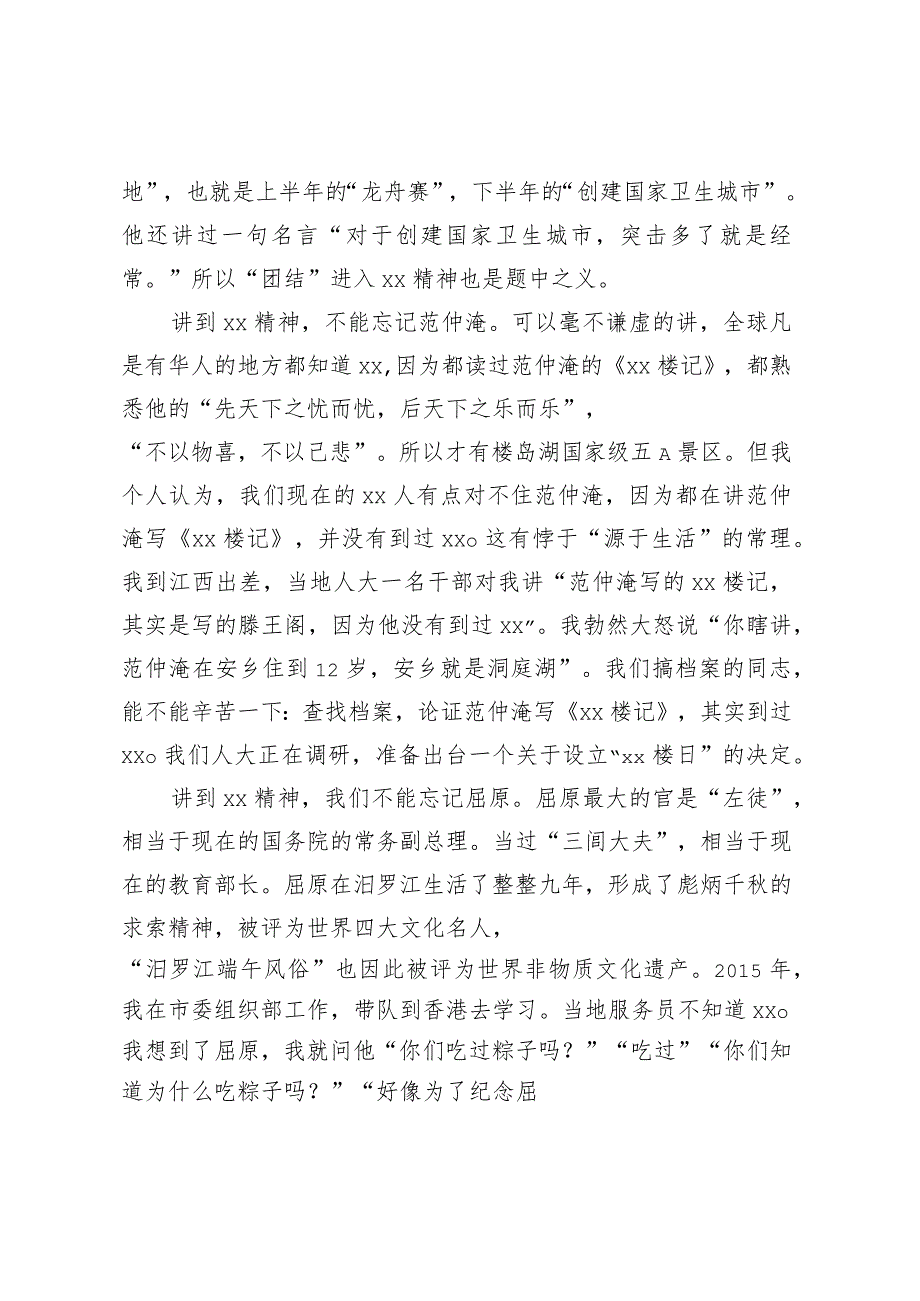 地”，也就是上半年的“龙舟赛”，下半年的“创建国家卫生城市”。
他还讲过一句名言“对于创建国家卫生城市，突击多了就是经
常。”所以“团结”进入xx精神也是题中之义。
讲到xx精神，不能忘记范仲淹。可以毫不谦虚的讲，全球凡
是有华人的地方都知道xx,因为都读过范仲淹的《xx楼记》，都熟
悉他的“先天下之忧而忧，后天下之乐而乐”，
“不以物喜，不以己悲”。所以才有楼岛湖国家级五A景区。但我
个人认为，我们现在的xx人有点对不住范仲淹，因为都在讲范仲
淹写《xx楼记》，并没有到过xxo这有悖于“源于生活”的常理。
我到江西出差，当地人大一名干部对我讲“范仲淹写的xx楼记，
其实是写的滕王阁，因为他没有到过xx”。我勃然大怒说“你瞎讲，
范仲淹在安乡住到12岁，安乡就是洞庭湖”。我们搞档案的同志，
能不能辛苦一下：查找档案，论证范仲淹写《xx楼记》，其实到过
xxo我们人大正在调研，准备出台一个关于设立“xx楼日”的决定。
讲到xx精神，我们不能忘记屈原。屈原最大的官是“左徒”，
相当于现在的国务院的常务副总理。当过“三间大夫”，相当于现
在的教育部长。屈原在汨罗江生活了整整九年，形成了彪炳千秋的
求索精神，被评为世界四大文化名人，
“汨罗江端午风俗”也因此被评为世界非物质文化遗产。2015年，
我在市委组织部工作，带队到香港去学习。当地服务员不知道xxo
我想到了屈原，我就问他“你们吃过粽子吗？”“吃过”“你们知
道为什么吃粽子吗？”“好像为了纪念屈